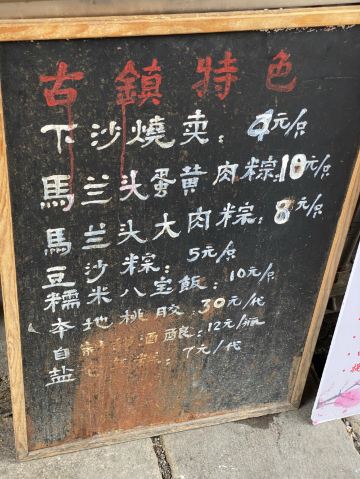 古鎮特色
下沙燒卖：4元/只
馬兰头蛋黄肉粽：10元/只
馬兰头大肉粽：8元/只
豆沙粽：5元/只
糯米八宝飯：10元/只
本地桃胶：30元/代
自制酒酿：12元/瓶
盐 7元/代